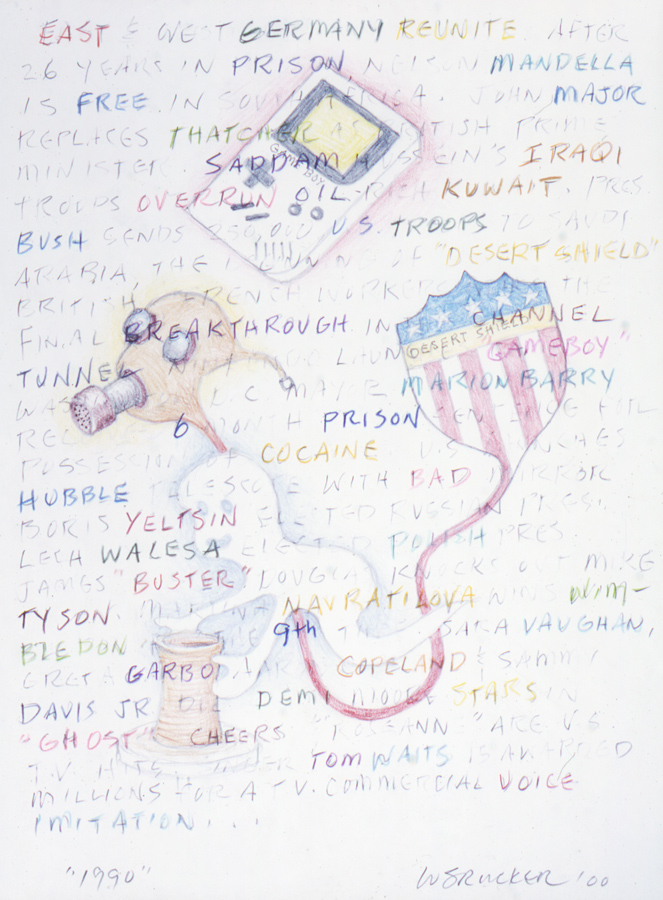 EAST & WEST GERMANY REUNITE. AFTER
26 YEARS IN PRISON, NELSON MANDELLA
IS FREE IN SOUTH AFRICA. JOHN MAJOR
REPLACES THATCHER AS BRITISH PRIME
MINISTER. SADDAM HUSSEIN'S IRAQI
TROOPS OVERRUN OIL-RICH KUWAIT. PRES.
BUSH SENDS 250,000 U.S. TROOPS TO SAUDI
ARABIA, THE BEGINNING OF "DESERT SHIELD"
BRITISH & FRENCH WORKERS THE
FINAL BREAKTHROUGH IN CHANNEL
TUNNEL. NINTENDO LAUN "GAMEBOY"
WAS D.C. MAYOR MARION BARRY
RE 6 MONTH PRISON SENTENCE FOR
POSSESSION OF COCAINE. U.S. LAUNCHES
HUBBLE TELESCOPE WITH BAD MIRROR.
BORIS YELTSIN ELECTED RUSSIAN PRES.
LECH WALESA ELECTED POLISH PRES.
JAMES "BUSTER" DOUGLAS KNOCKS OUT MIKE
TYSON. MARTINA NAVRATILOVA WINS WIM-
BLEDON 9th SARA VAUGHAN,
GRETA GARBO, COPELAND & SAMMY
DAVIS JR DIE. DEMI MOORE STARS IN
"GHOST" CHEERS "ROSEANNE" ARE U.S.
T.V. HITS. TOM WAITS IS AWARDED
MILLIONS FOR A T.V. COMMERCIAL VOICE
IMITATION...
GAMEBOY
DESERT SHIELD
"1990"
WSRUCKER '00